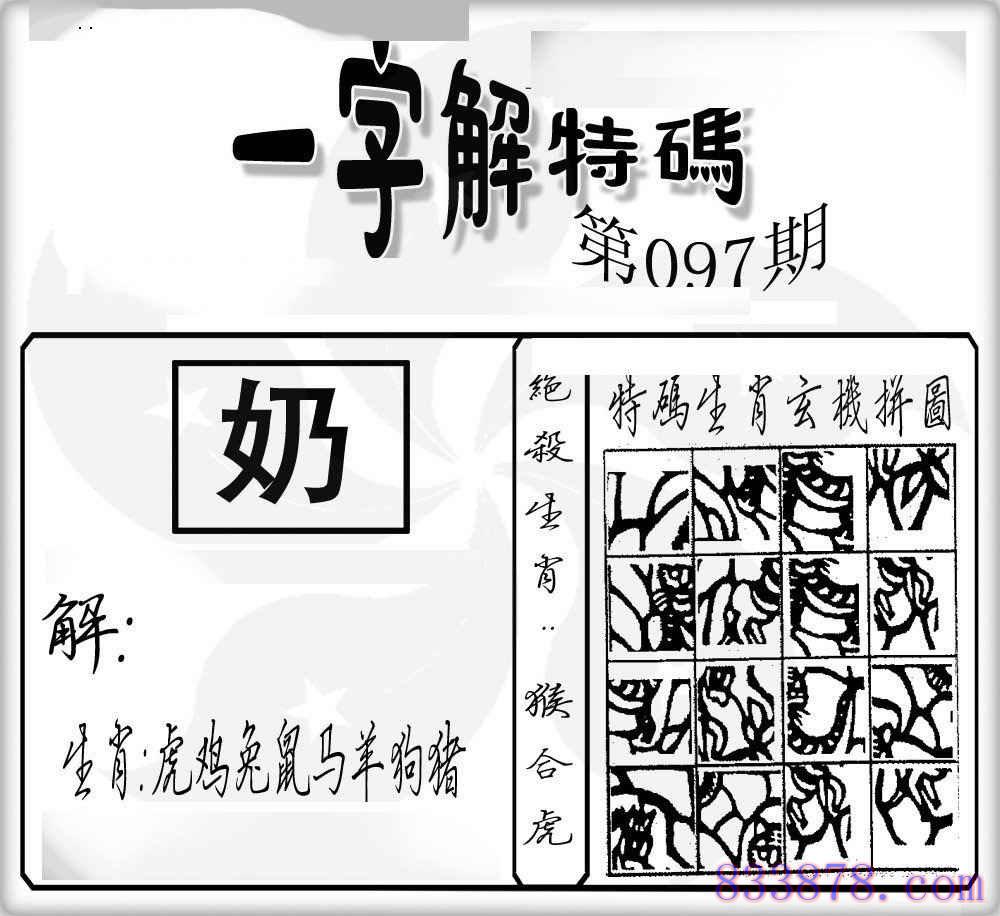 一字解特碼
第097期
奶
解:
生肖:虎鸡兔鼠马羊狗猪
絕殺生肖:猴合虎
特碼生肖玄機拼圖
833878.com